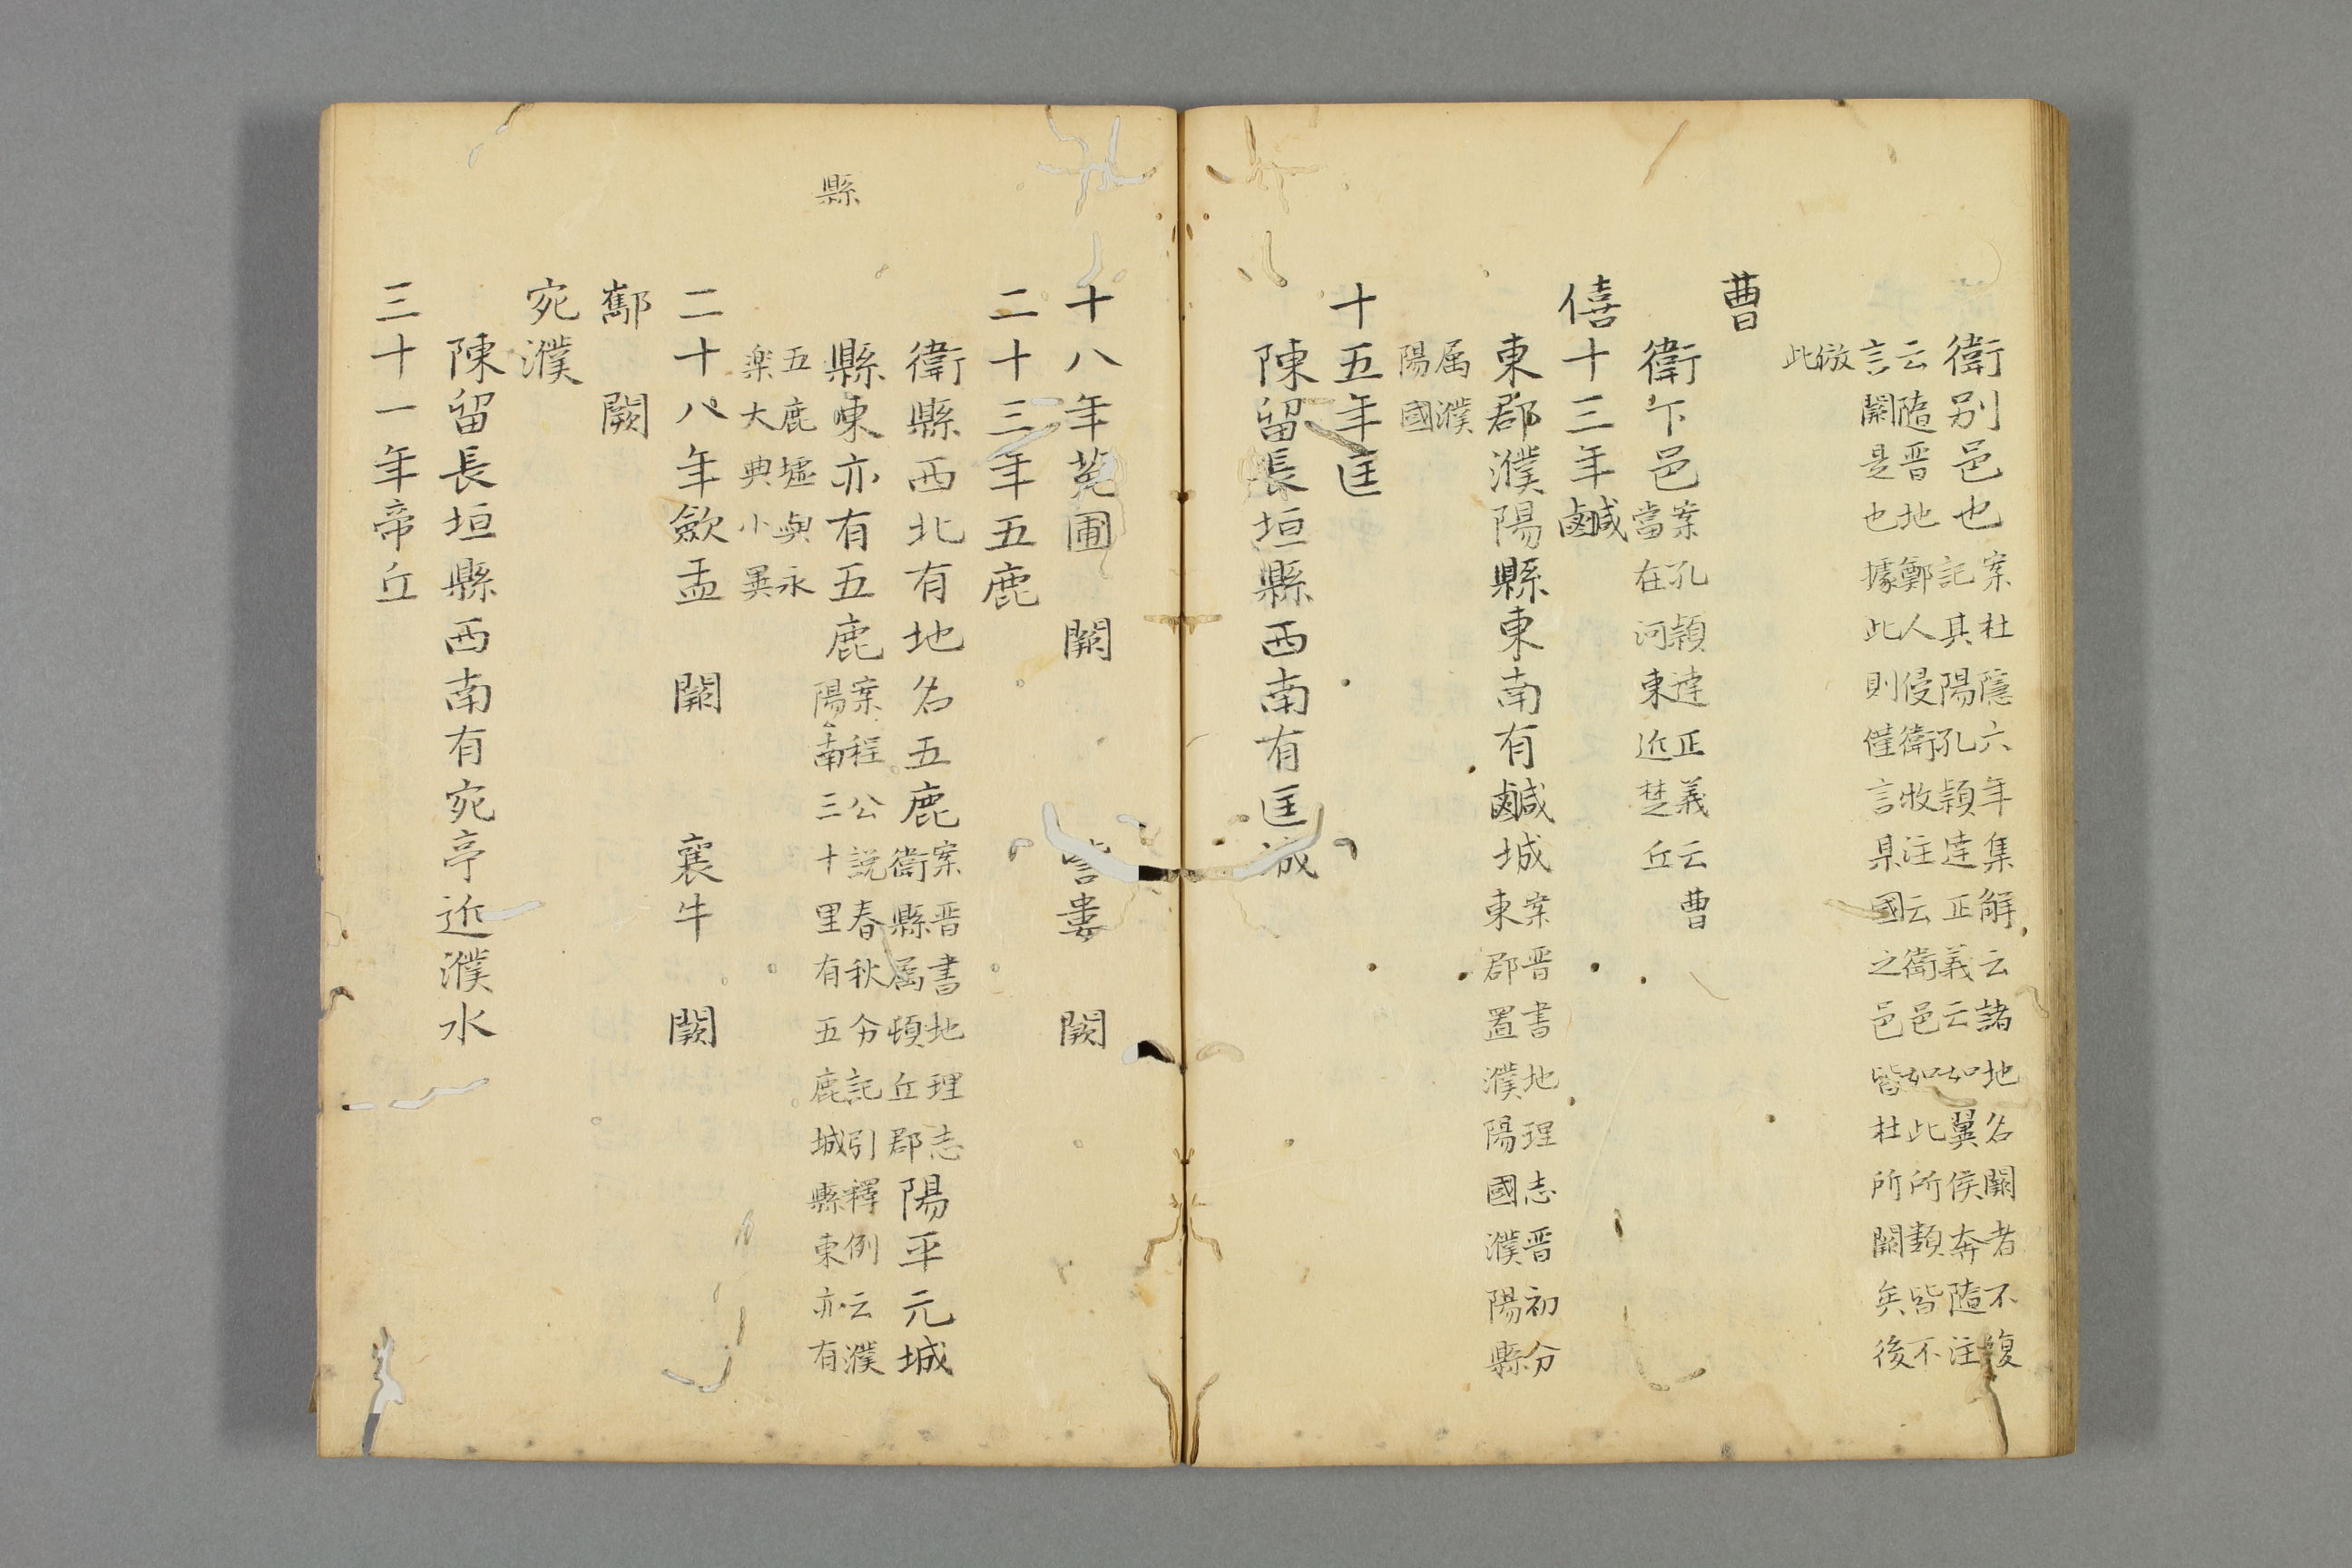 衛別邑也
案杜隱六年集解云諸地名闕者不復
記其陽孔穎達正義云如翼侯奔隨注
云隨晋地鄭人侵衛牧注云衛邑如此所類皆不
言闕是也據此則僅言某國之邑皆杜所闕矣後
倣
此
曹
衛下邑
案孔穎達正義云曹
當在河東近楚丘
僖十三年鹹
東郡濮陽縣東南有鹹城
案晋書地理志晋初分
東郡置濮陽國濮陽縣
属濮
陽國
十五年匡
陳留長垣縣西南有匡城
十八年菟圃 闕 訾婁 闕
二十三年五鹿
衛縣西北有地名五鹿
案晋書地理志
衛縣属頓丘郡
陽平元城
縣
縣東亦有五鹿
案程公説春秋分記引釋例云濮
陽南三十里有五鹿城縣東亦有
五鹿墟與永
楽大典小異
二十八年斂盂 闕 襄牛 闕
闕
宛濮
陳留長垣縣西南有宛亭近濮水
三十一年帝丘